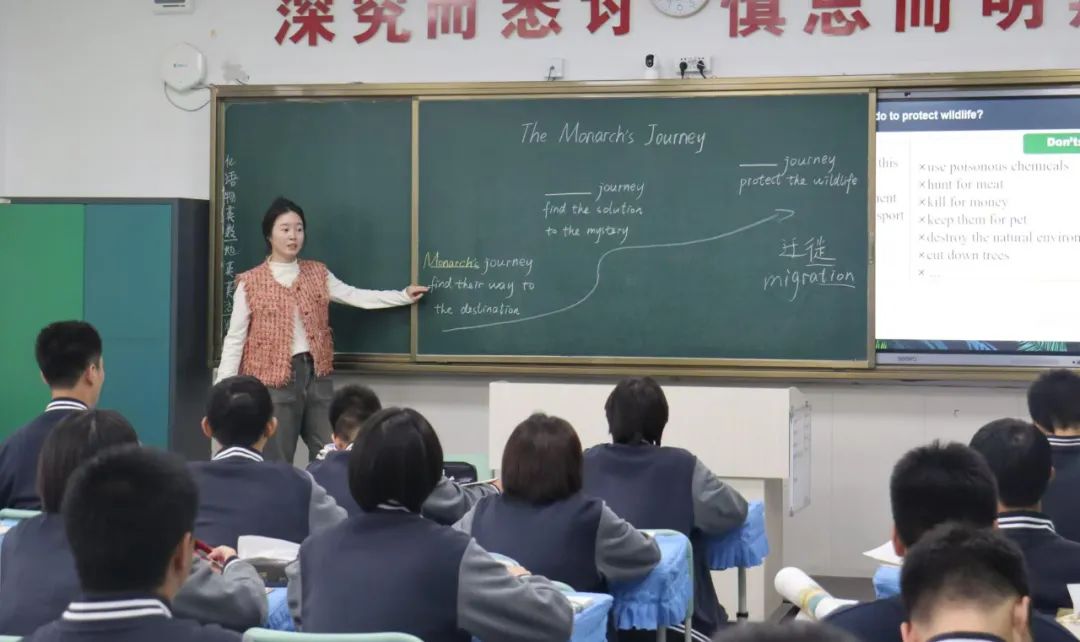 深究而悉讨 慎思而明
The Monarch's Journey
____ journey
protect the wildlife
____ journey
find the solution
to the mystery
Monarch's journey
find their way to
the destination
迁徙
migration
化
语
物
英
数
地
英
do to protect wildlife?
Don't
this
×use poisonous chemicals
×hunt for meat
×kill for money
sport
×keep them for pet
×destroy the natural environ
×cut down trees
× ...